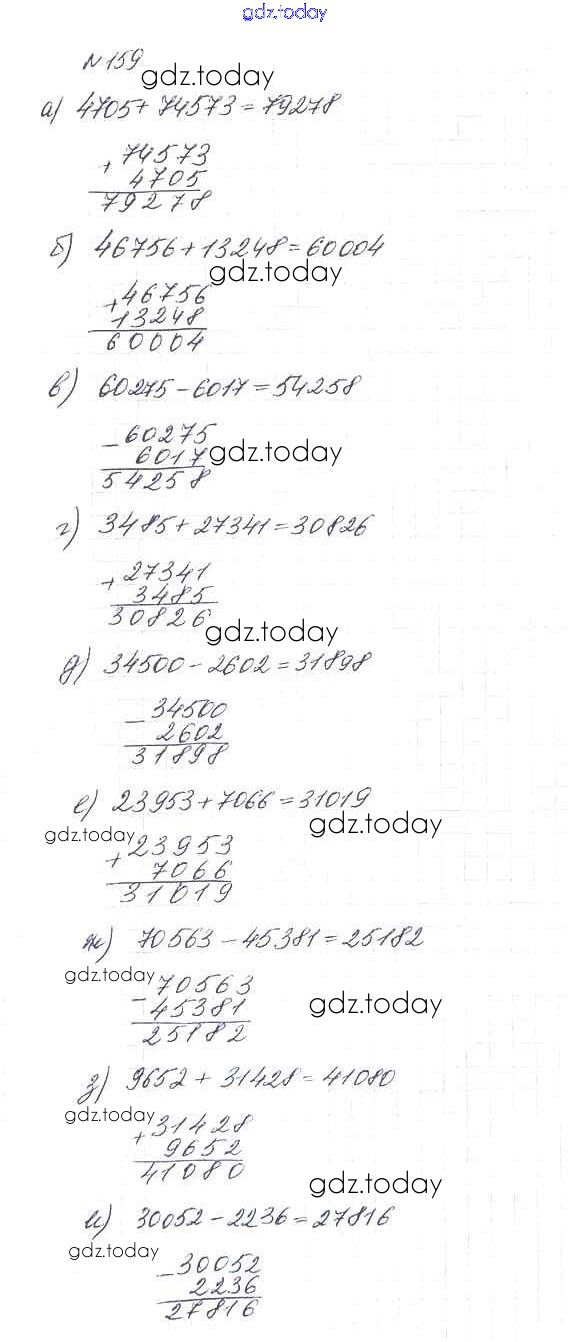 gdz.today
№159
gdz.today
а) 4705+74573=79278
+74573
4705
79278
б) 46756+13248=60004
gdz.today
+46756
13248
60004
в) 60275-6017=54258
-60275
6017
gdz.today
54258
г) 3485+27341=30826
+27341
3485
30826
gdz.today
д) 34500-2602=31898
-34500
2602
31898
е) 23953+7066=31019
gdz.today
gdz.today
+23953
7066
31019
ж) 70563-45381=25182
gdz.today
-70563
45381
gdz.today
25182
з) 9652+31428=41080
gdz.today
+31428
9652
41080
gdz.today
и) 30052-2236=27816
gdz.today
-30052
2236
27816